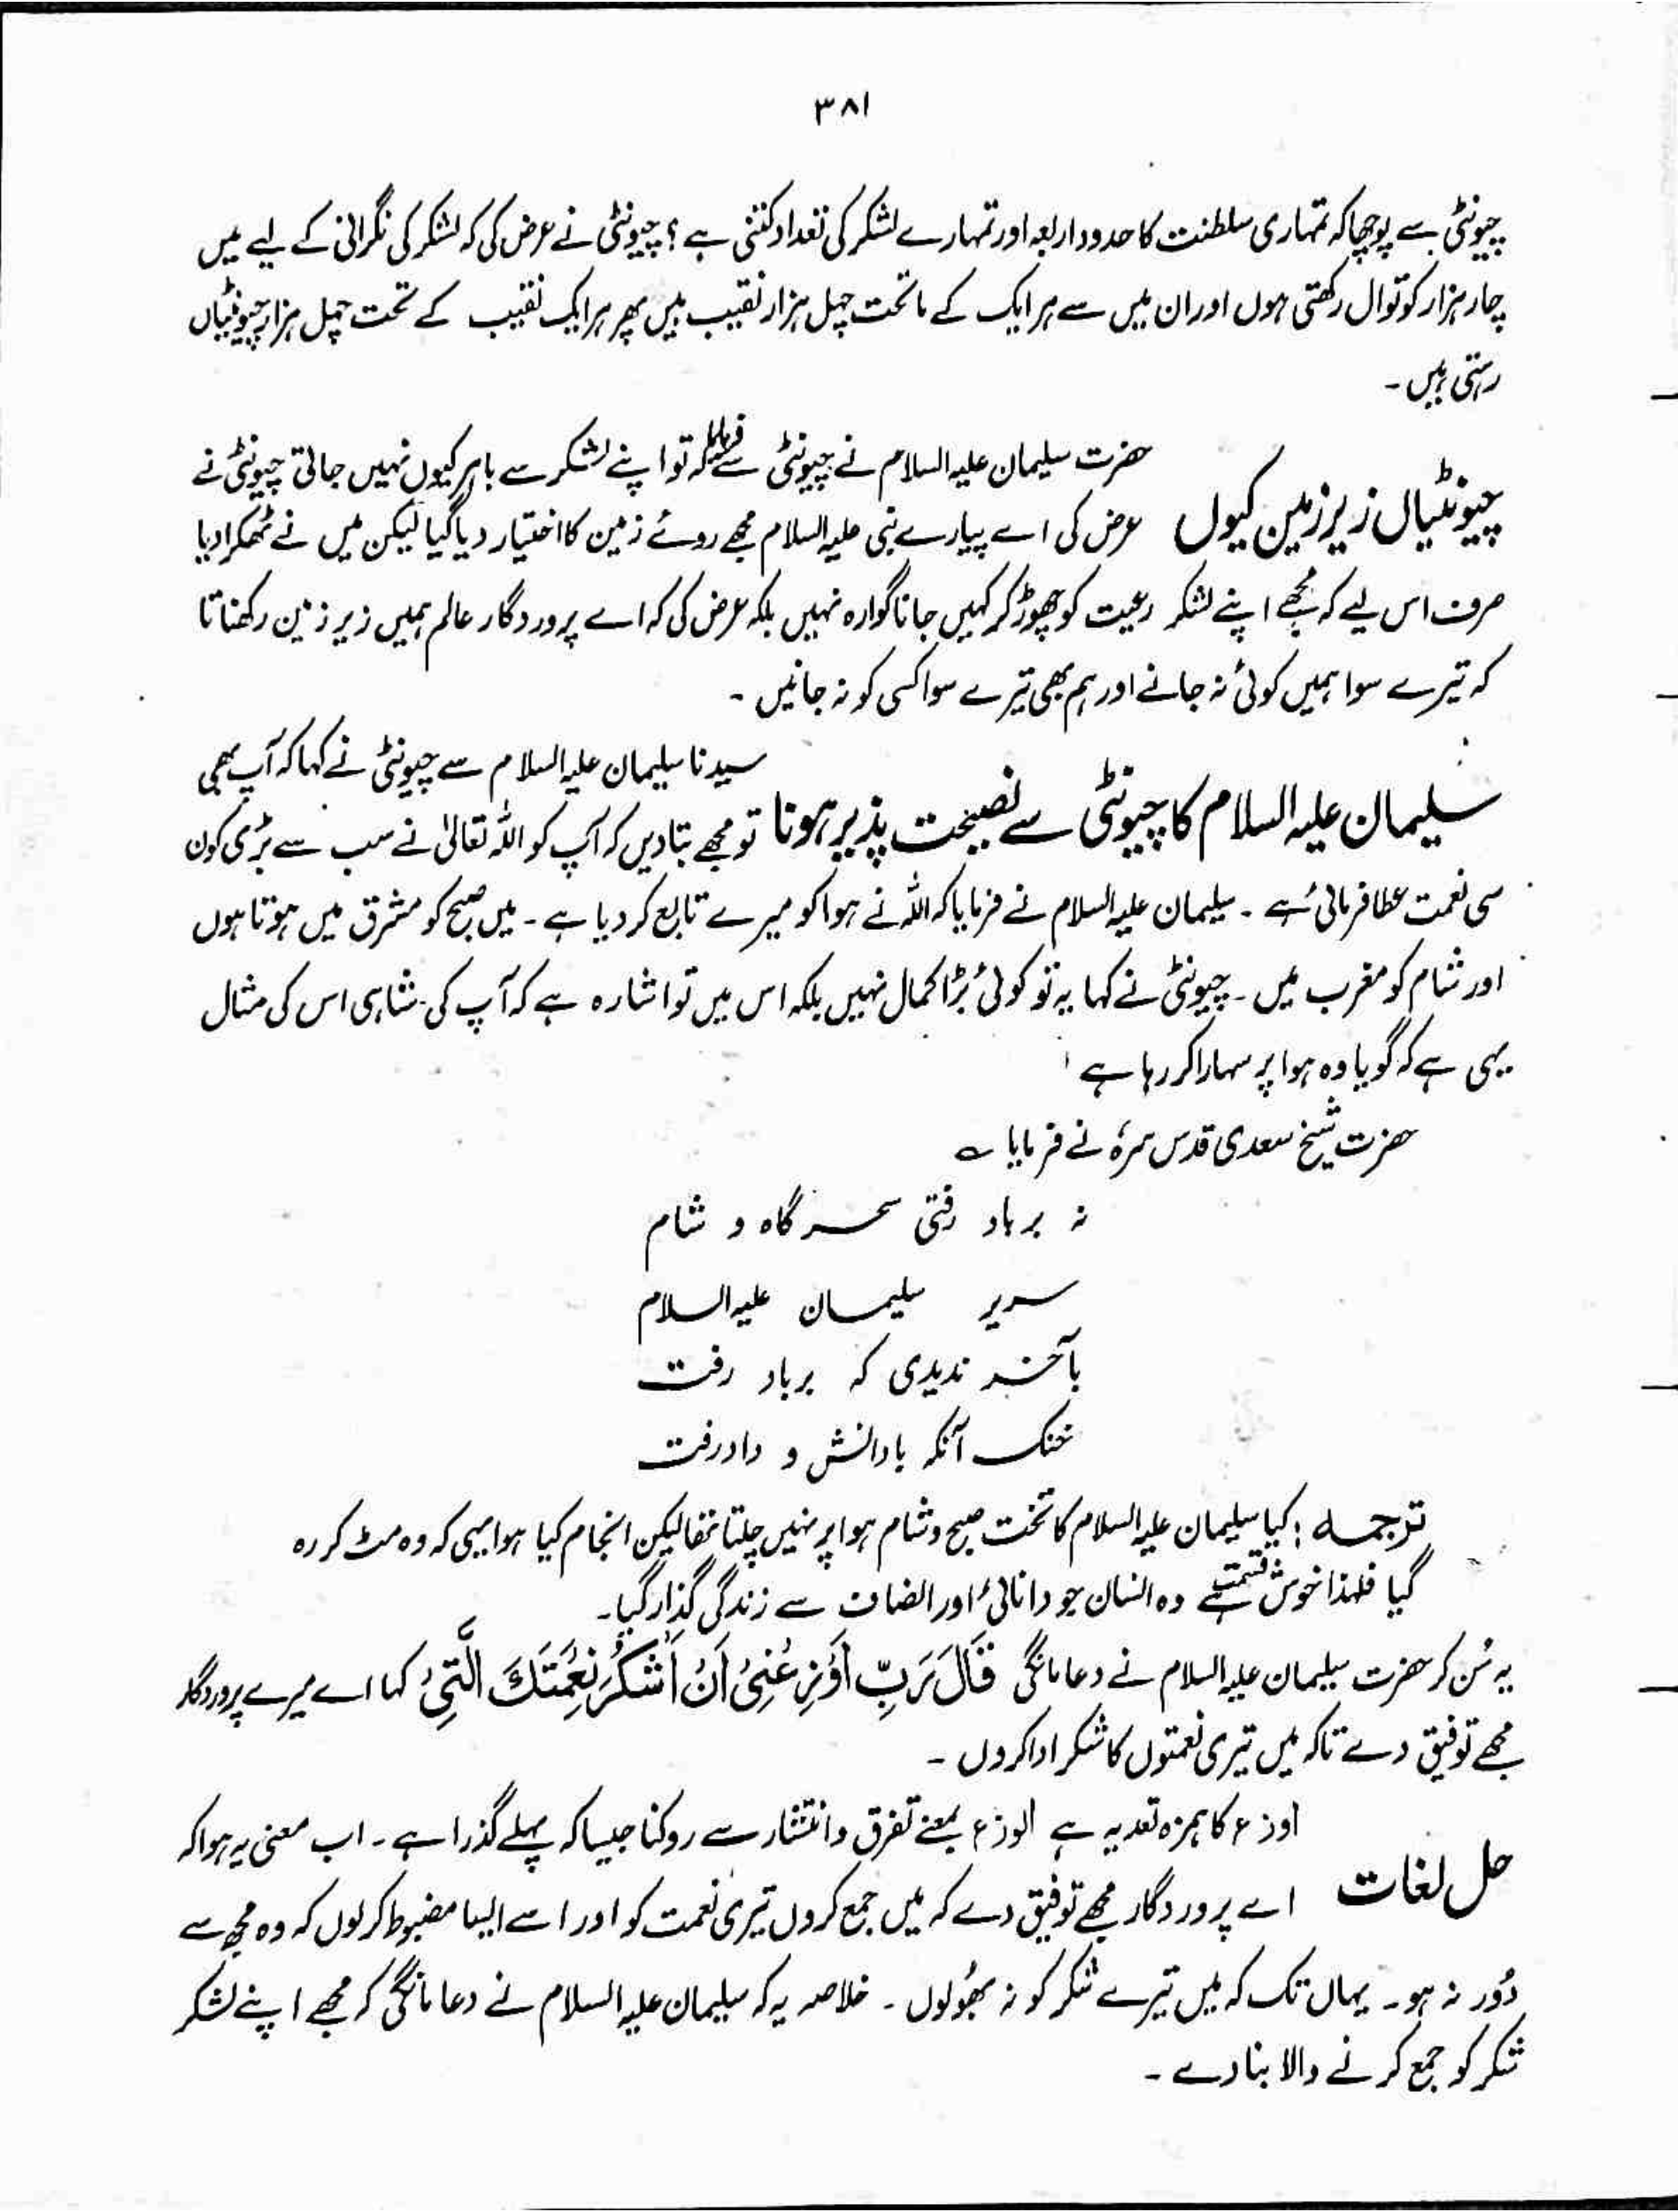 ۳۸۱
چیونٹی سے پوچھا کہ تمہاری سلطنت کا حدود اربعہ اور تمہارے لشکر کی تعداد کتنی ہے ؟ چیونٹی نے عرض کی کہ لشکر کی نگرانی کے لیے میں
چار ہزار کوتوال رکھتی ہوں اور ان میں سے ہر ایک کے ماتحت چہل ہزار نقیب ہیں پھر ہر ایک نقیب کے تحت چہل ہزار چیونٹیاں
رہتی ہیں ۔
حضرت سلیمان علیہ السلام نے چیونٹی سے فرمایا کہ تو اپنے لشکر سے باہر کیوں نہیں جاتی چیونٹی نے
چیونٹیاں زیر زمین کیوں عرض کی اے پیارے نبی علیہ السلام مجھے روئے زمین کا اختیار دیا گیا لیکن میں نے ٹھکرا دیا
صرف اس لیے کہ مجھے اپنے لشکر رعیت کو چھوڑ کر کہیں جانا گوارہ نہیں بلکہ عرض کی کہ اے پروردگار عالم ہمیں زیر زمین رکھنا تا
کہ تیرے سوا ہمیں کوئی نہ جانے اور ہم بھی تیرے سوا کسی کو نہ جانیں ۔
سیدنا سلیمان علیہ السلام سے چیونٹی نے کہا کہ آپ بھی
سلیمان علیہ السلام کا چیونٹی سے نصیحت پذیر ہونا تو مجھے بتا دیں کہ آپ کو اللہ تعالیٰ نے سب سے بڑی کون
سی نعمت عطا فرمائی ہے ۔ سلیمان علیہ السلام نے فرمایا کہ اللہ نے ہوا کو میرے تابع کر دیا ہے ۔ میں صبح کو مشرق میں ہوتا ہوں
اور شام کو مغرب میں ۔ چیونٹی نے کہا یہ تو کوئی بڑا کمال نہیں بلکہ اس میں تو اشارہ ہے کہ آپ کی شاہی اس کی مثال
یہی ہے کہ گویا وہ ہوا پر سہارا کر رہا ہے
حضرت شیخ سعدی قدس سرہٗ نے فرمایا ؎
نہ برباد رفتی سحر گاہ و شام
سریر سلیمان علیہ السلام
بآخر ندیدی کہ برباد رفت
خنک آنکہ بادانش و داد رفت
ترجمہ : کیا سلیمان علیہ السلام کا تخت صبح و شام ہوا پر نہیں چلتا تھا لیکن انجام کیا ہوا یہی کہ وہ مٹ کر رہ
گیا فلہذا خوش قسمت ہے وہ انسان جو دانائی اور انصاف سے زندگی گذار گیا ۔
یہ سُن کر حضرت سلیمان علیہ السلام نے دعا مانگی قَالَ رَبِّ اَوْزِعْنِیْ اَنْ اَشْکُرَ نِعْمَتَکَ الَّتِیْ کہا اے میرے پروردگار
مجھے توفیق دے تاکہ میں تیری نعمتوں کا شکر ادا کروں ۔
اوزع کا ہمزہ تعدیہ ہے الوزع بمعنے تفرق و انتشار سے روکنا جیسا کہ پہلے گذرا ہے ۔ اب معنی یہ ہوا کہ
حل لغات اے پروردگار مجھے توفیق دے کہ میں جمع کروں تیری نعمت کو اور اسے ایسا مضبوط کر لوں کہ وہ مجھ سے
دُور نہ ہو ۔ یہاں تک کہ میں تیرے شکر کو نہ بھُولوں ۔ خلاصہ یہ کہ سلیمان علیہ السلام نے دعا مانگی کہ مجھے اپنے لشکر
شکر کو جمع کرنے والا بنا دے ۔